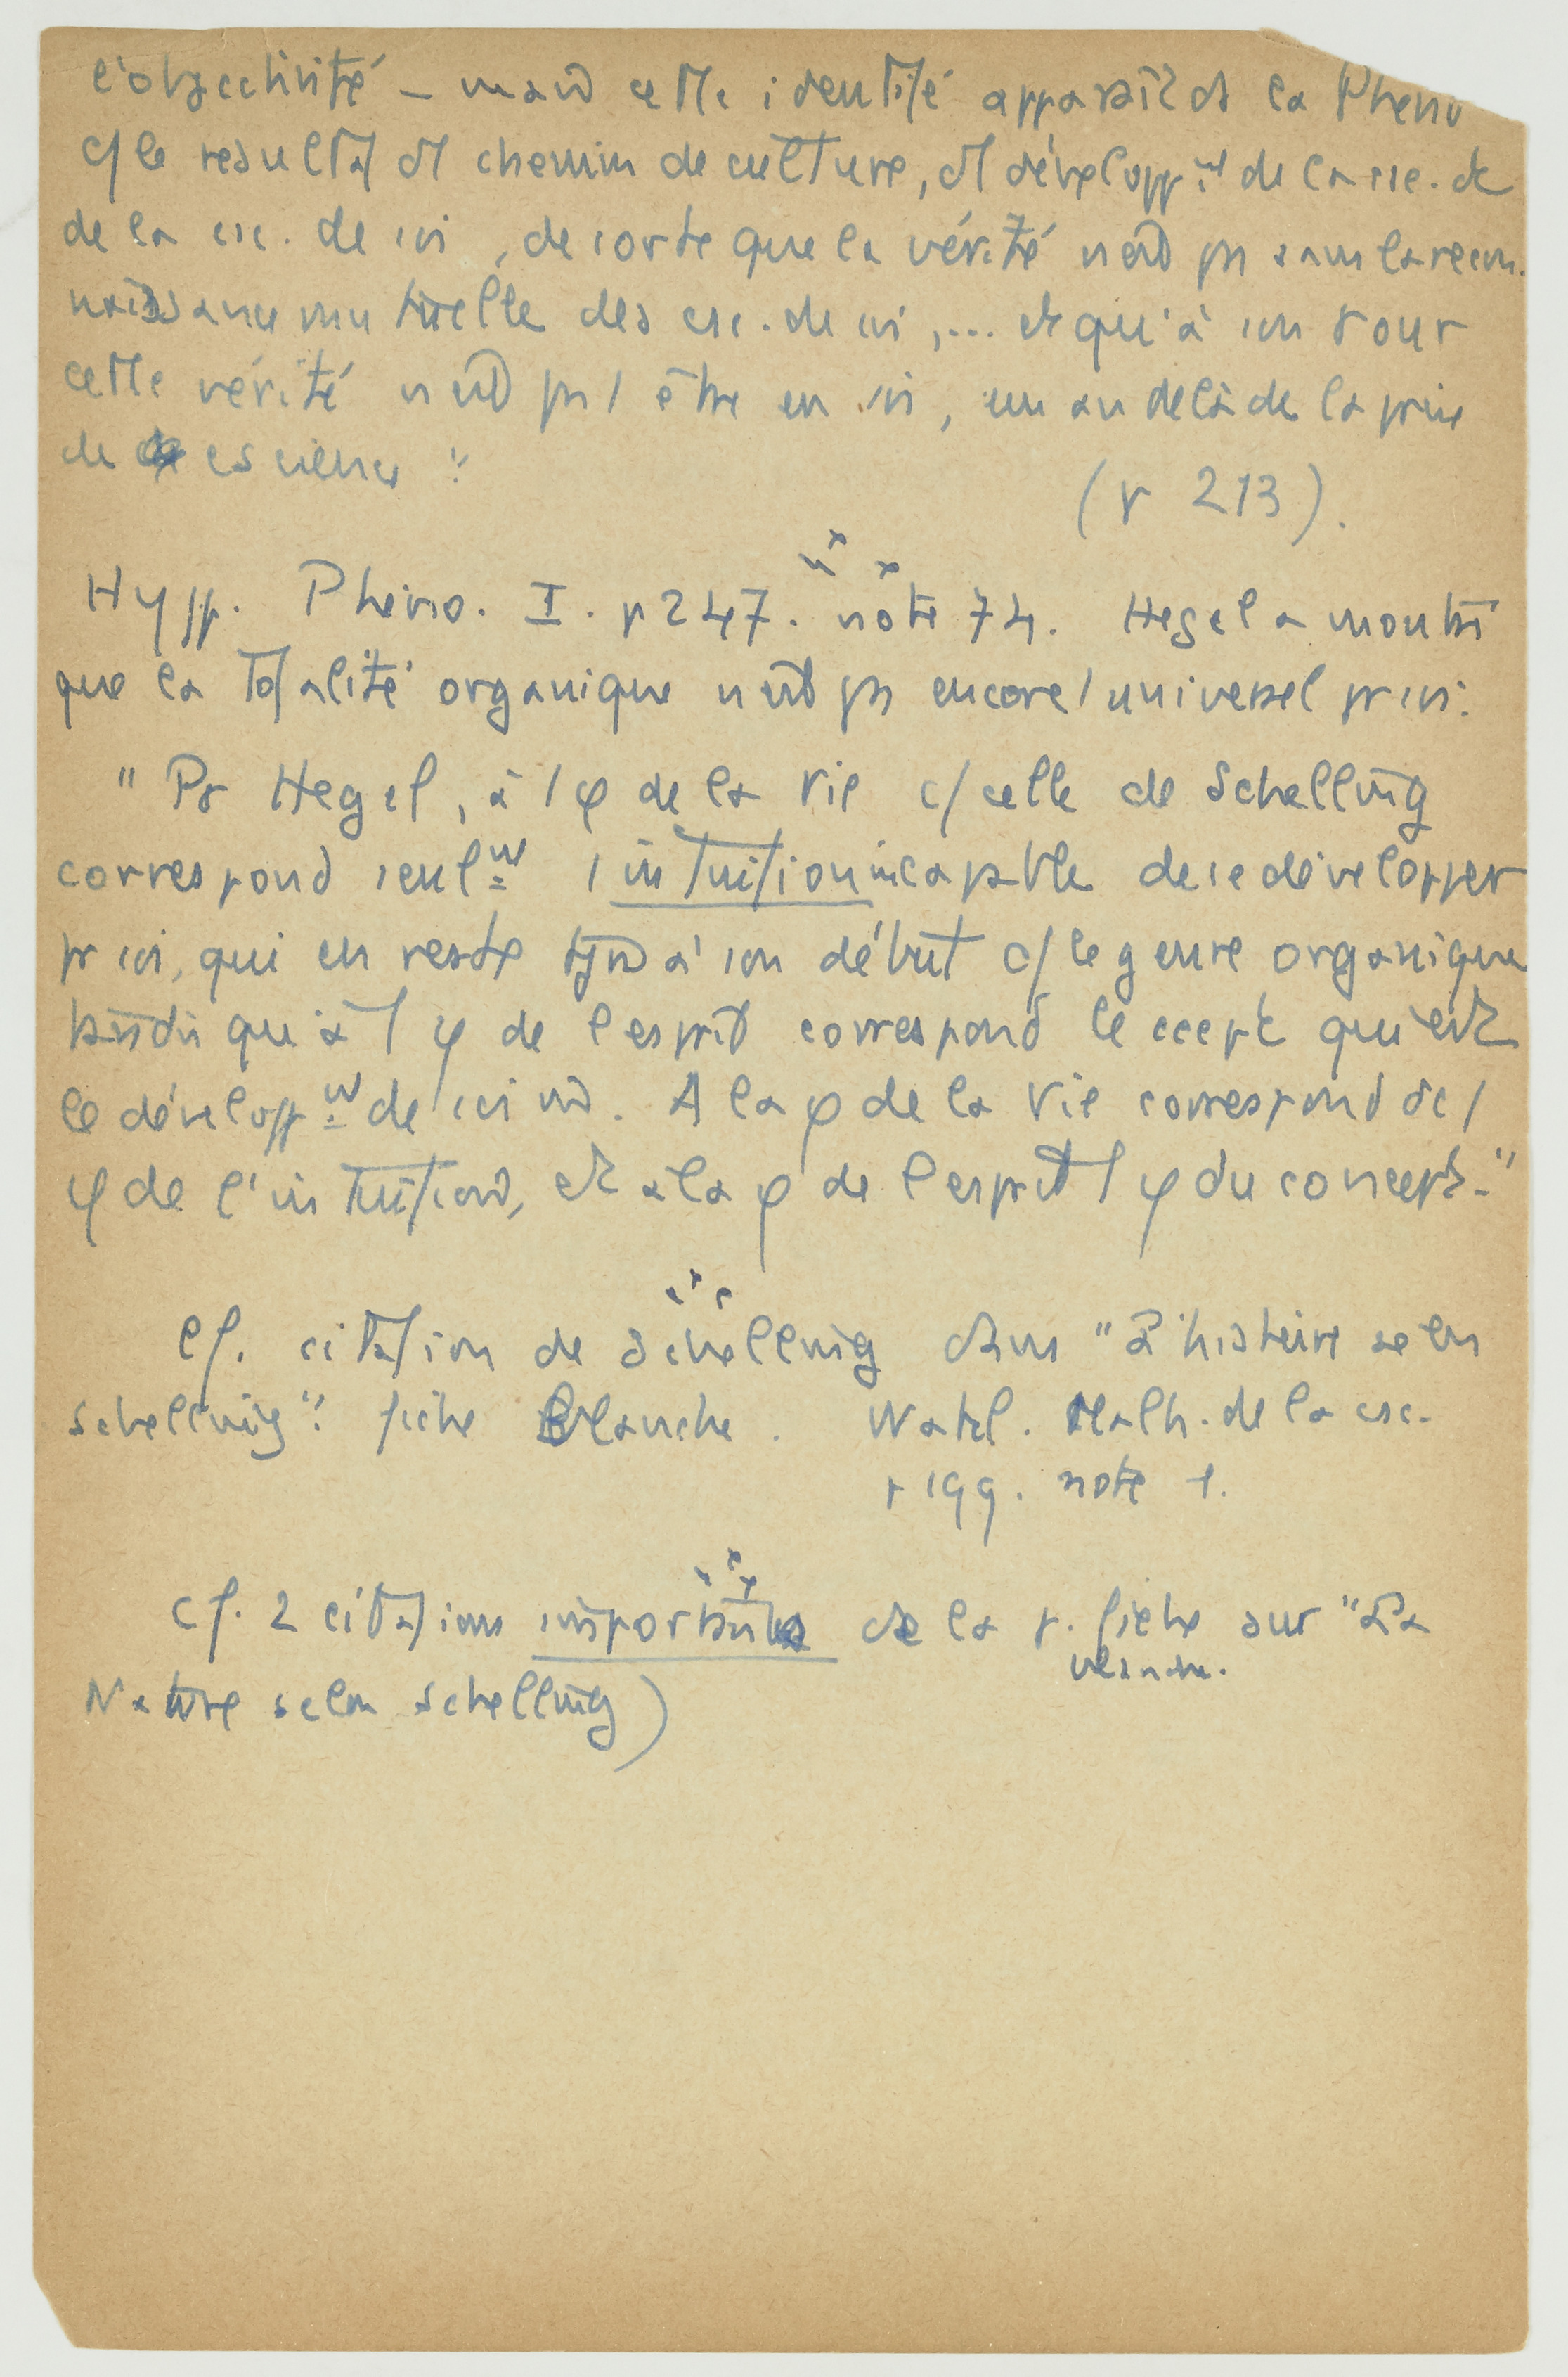 l'objectivité – mais cette identité apparaît ds la Phéno
c/ le resultat d'1 chemin de culture, d'1 développ.nt de la csc. de
de la csc. de soi, de sorte que la vérité n'est ps sans la recon-
naissance mutuelle des csc. de soi, ... et qu'à son tour
cette vérité n'est ps 1 être en soi, un au delà de la prise
de cscience"
(p 213).
Hypp. Phéno. I. p 247. note 74. Hegel a montré
que la totalité organique n'est ps encore l'universel pr soi.
" Pr Hegel, à 1 φ de la vie c/ celle de Schelling
correspond seulnt 1 intuition incapable de se développer
pr soi, qui en reste tjrs à son début c/ le genre organique
tandis qu'à 1 φ de l'esprit correspond le ccept qui est
le développnt de soi m̂. A la φ de la Vie correspond dc 1
φ de l'intuition, et à la φ de l'esprit 1 φ du concept."
Cf. citation de Schelling dans "L'histoire selon
Schelling". fiche Blanche. Wahl. Malh. de la csc.
p 199. note 1.
Cf. 2 citations importantes de la p. fiche sur "La
blanche.
Nature selon Schelling)